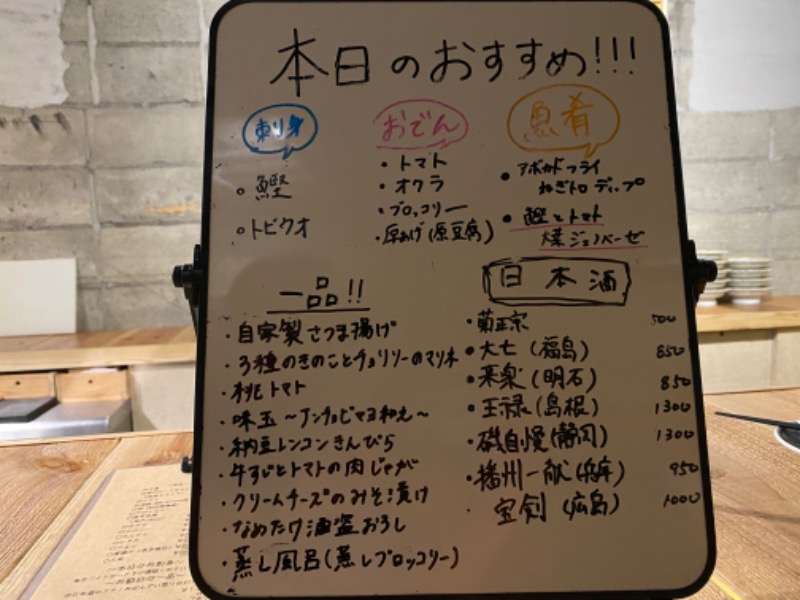 本日のおすすめ!!!
刺身
鰹
トビウオ
おでん
・トマト
・オクラ
・ブロッコリー
・厚あげ(原豆腐)
魚肴
・アボカドフライ
ねぎトロディップ
・鰹とトマト
燻ジェノベーゼ
一品!!
・自家製さつま揚げ
・3種のきのことチョリソーのマリネ
・桃トマト
・味玉〜アンチョビマヨ和え〜
・納豆レンコンきんぴら
・牛すじとトマトの肉じゃが
・クリームチーズのみそ漬け
・なめたけ酒盗おろし
・蒸し風呂(蒸しブロッコリー)
日本酒
・菊正宗 500
・大七(福島) 850
・来楽(明石) 850
・王禄(島根) 1300
・磯自慢(静岡) 1300
・播州一献(兵庫) 950
・宝剣(広島) 1000